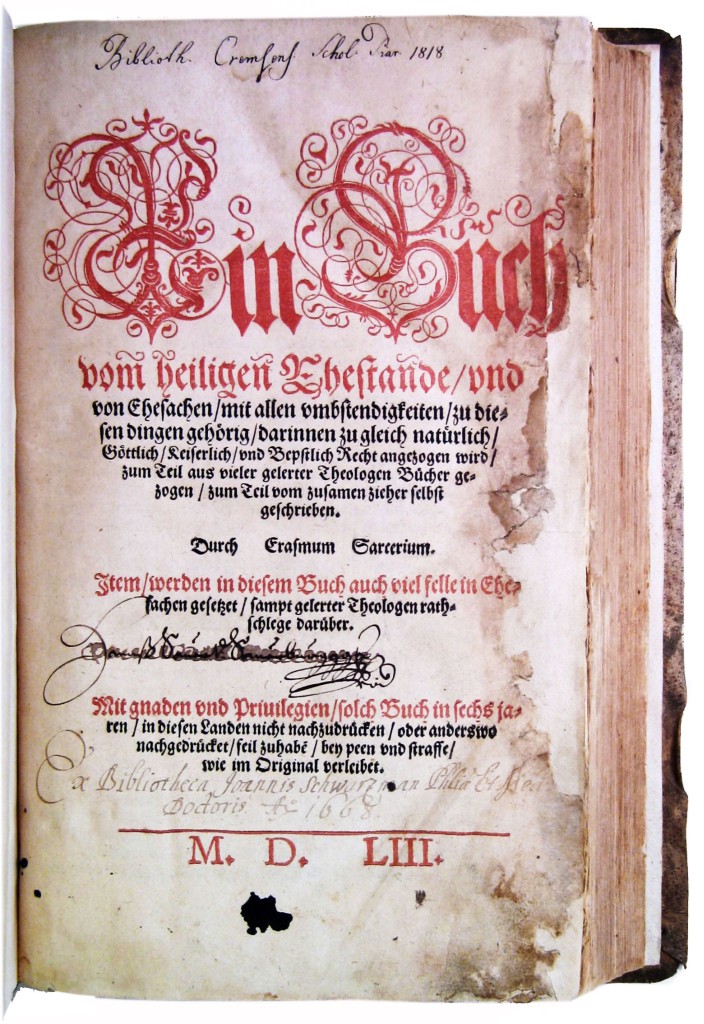 Biblioth. Cremsens. Schol. Piar. 1818
Ein Buch
vom̄ heiligeñ Ehestañde/vnd
von Ehesachen/mit allen vmbstendigkeiten/zu die⸗
sen dingen gehörig/darinnen zu gleich natürlich/
Göttlich/Keiserlich/vnd Bepstlich Recht angezogen wird/
zum Teil aus vieler gelerter Theologen Bücher ge⸗
zogen / zum Teil vom zusamen zieher selbst
geschrieben.
Durch Erasmum Sarcerium.
Item/werden in diesem Buch auch viel felle in Ehe⸗
sachen gesetzet / sampt gelerter Theologen rath⸗
schlege darüber.
Mit gnaden vnd Priuilegien/solch Buch in sechs ja⸗
ren / in diesen Landen nicht nachzudrücken / oder anderswo
nachgedrücket/feil zuhabē / bey peen vnd straffe/
wie im Original verleibet.
Ex Bibliotheca Joannis Schwarzman Philiæ Et
Doctoris Ao 1668.
M. D. LIII.